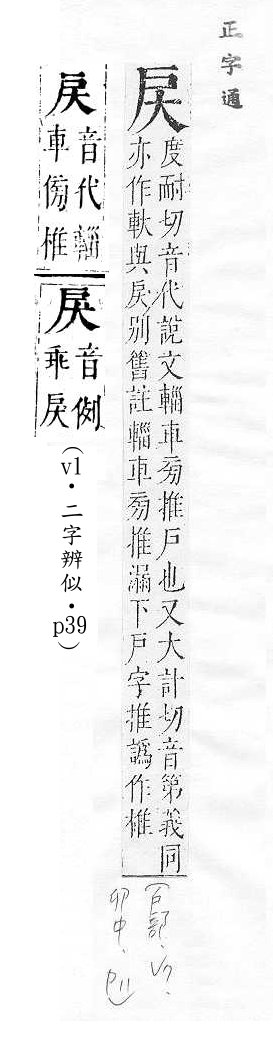 正字通
戻
度耐切音代說文輜車旁推戶也又大計切音第義同
亦作軑與戾別舊註輜車旁推漏下戶字推譌作椎
(戶部、V7、
卯中、P11)
戻
音代輜
車傍椎
戾
音例
乖戾
(v1・二字辨似・p39)